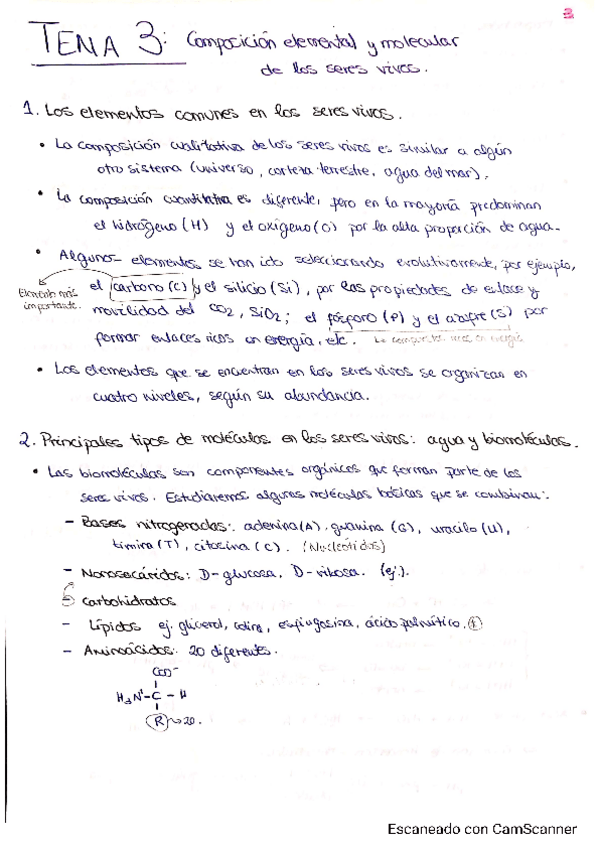 3
TEMA 3: Composición elemental y molecular
de los seres vivos.
1. Los elementos comunes en los seres vivos.
• La composición cualitativa de los seres vivos es similar a algún
otro sistema (universo, corteza terrestre, agua del mar).
• La composición cuantitativa es diferente, pero en la mayoría predominan
el hidrógeno (H) y el oxígeno (O) por la alta proporción de agua.
• Algunos elementos se han ido seleccionando evolutivamente, por ejemplo,
Elemento más
importante.
el carbono (C) y el silicio (Si), por las propiedades de enlace y
movilidad del CO2, SiO2; el fósforo (P) y el azufre (S) por
formar enlaces ricos en energía, etc.
• Los elementos que se encuentran en los seres vivos se organizan en
cuatro niveles, según su abundancia.
2. Principales tipos de moléculas en los seres vivos: agua y biomoléculas.
• Las biomoléculas son componentes orgánicos que forman parte de los
seres vivos. Estudiaremos algunas moléculas básicas que se combinan:
- Bases nitrogenadas: adenina (A), guanina (G), uracilo (U),
timina (T), citosina (C). (Nucleótidos)
- Monosacáridos: D-glucosa, D-ribosa. (ej.).
carbohidratos
- Lípidos ej. glicerol, colina, esfingosina, ácido palmítico. ①
- Aminoácidos: 20 diferentes.
COO⁻
H3N⁺-C-H
R → 20.
Escaneado con CamScanner